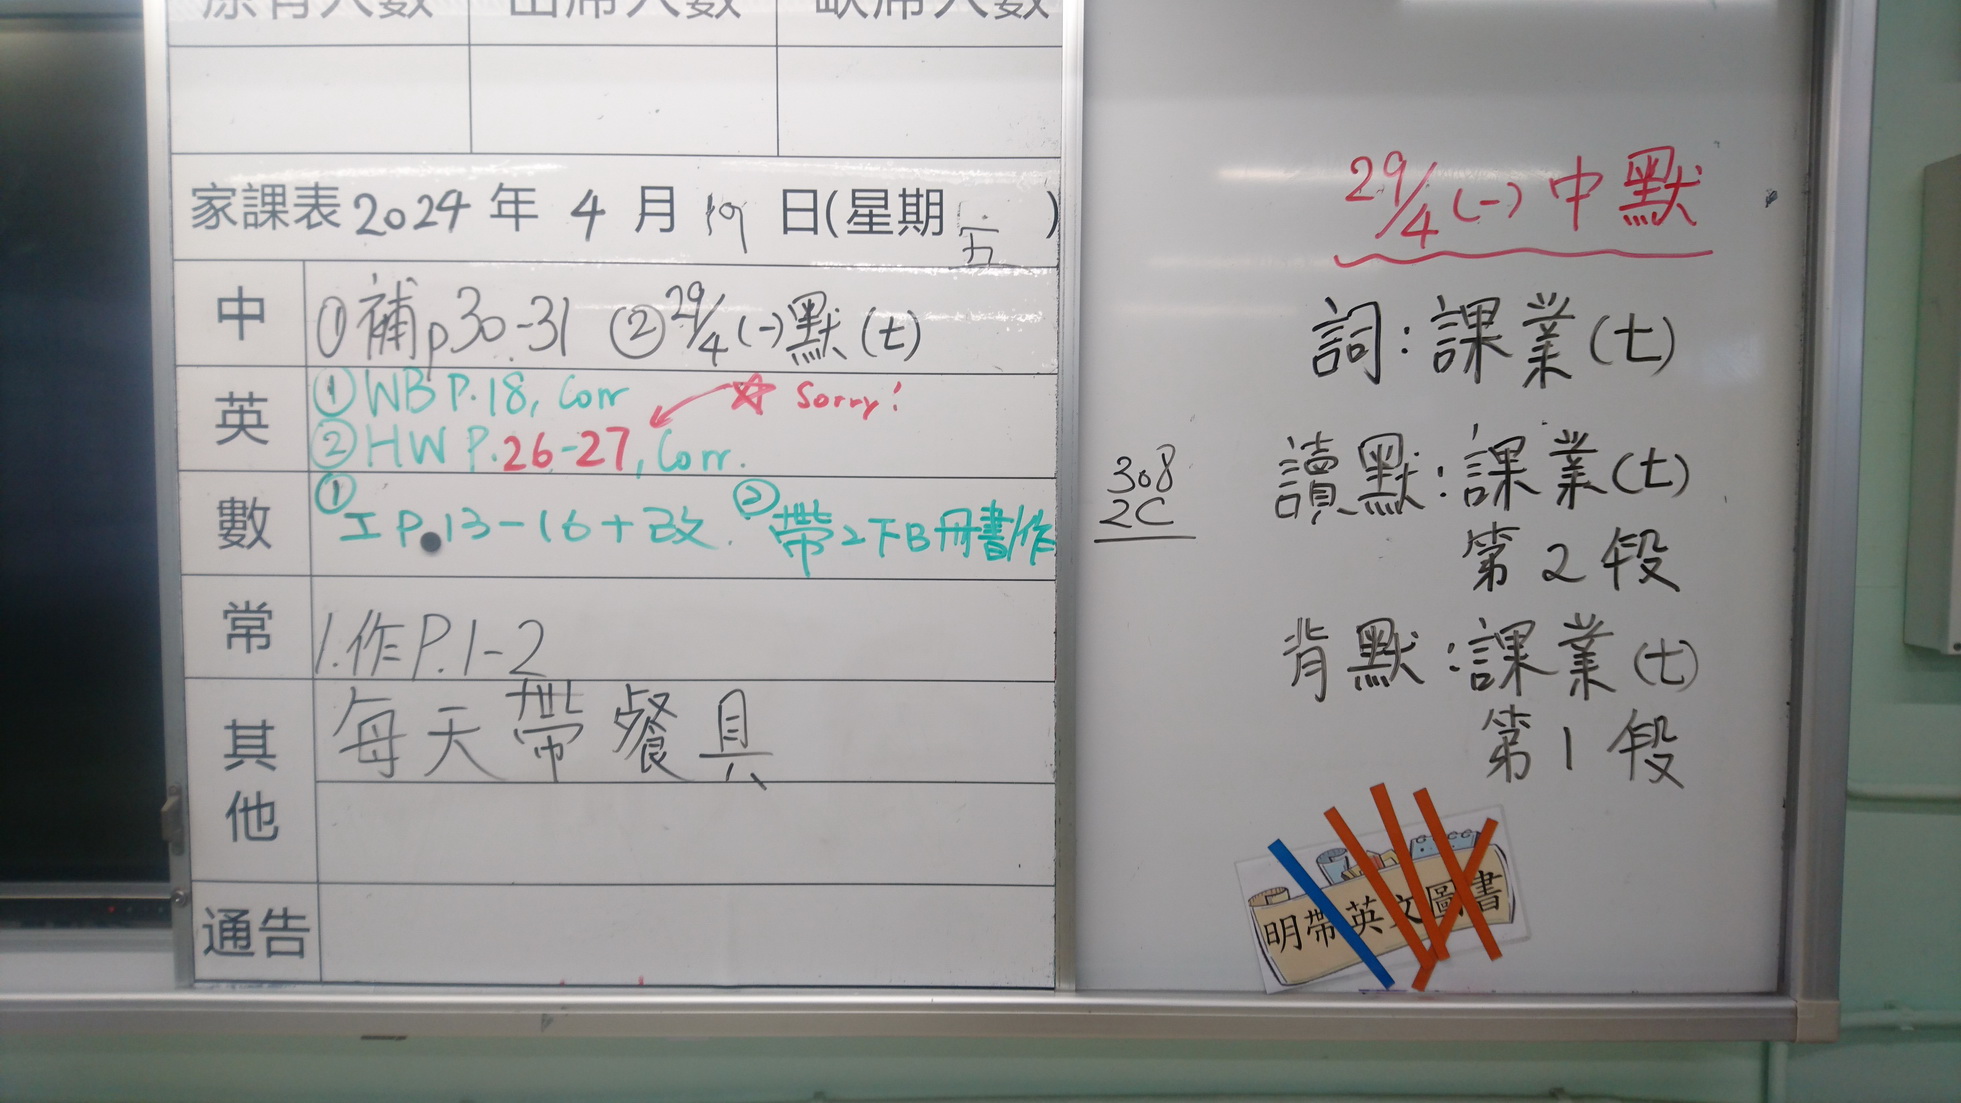 原有人數 出席人數 缺席人數
家課表2024年4月19日(星期五)
中 ①補p30-31 ②29/4(一)默(七)
英 ①WB P.18, Corr ☆ Sorry!
②HW P.26-27, Corr.
數 ①工P.13-16+改. ②帶2下B冊書/作
常 1.作P.1-2
其他 每天帶餐具
通告
29/4(一)中默
詞:課業(七)
讀默:課業(七)
第2段
背默:課業(七)
第1段
308
2C
明帶英文圖書